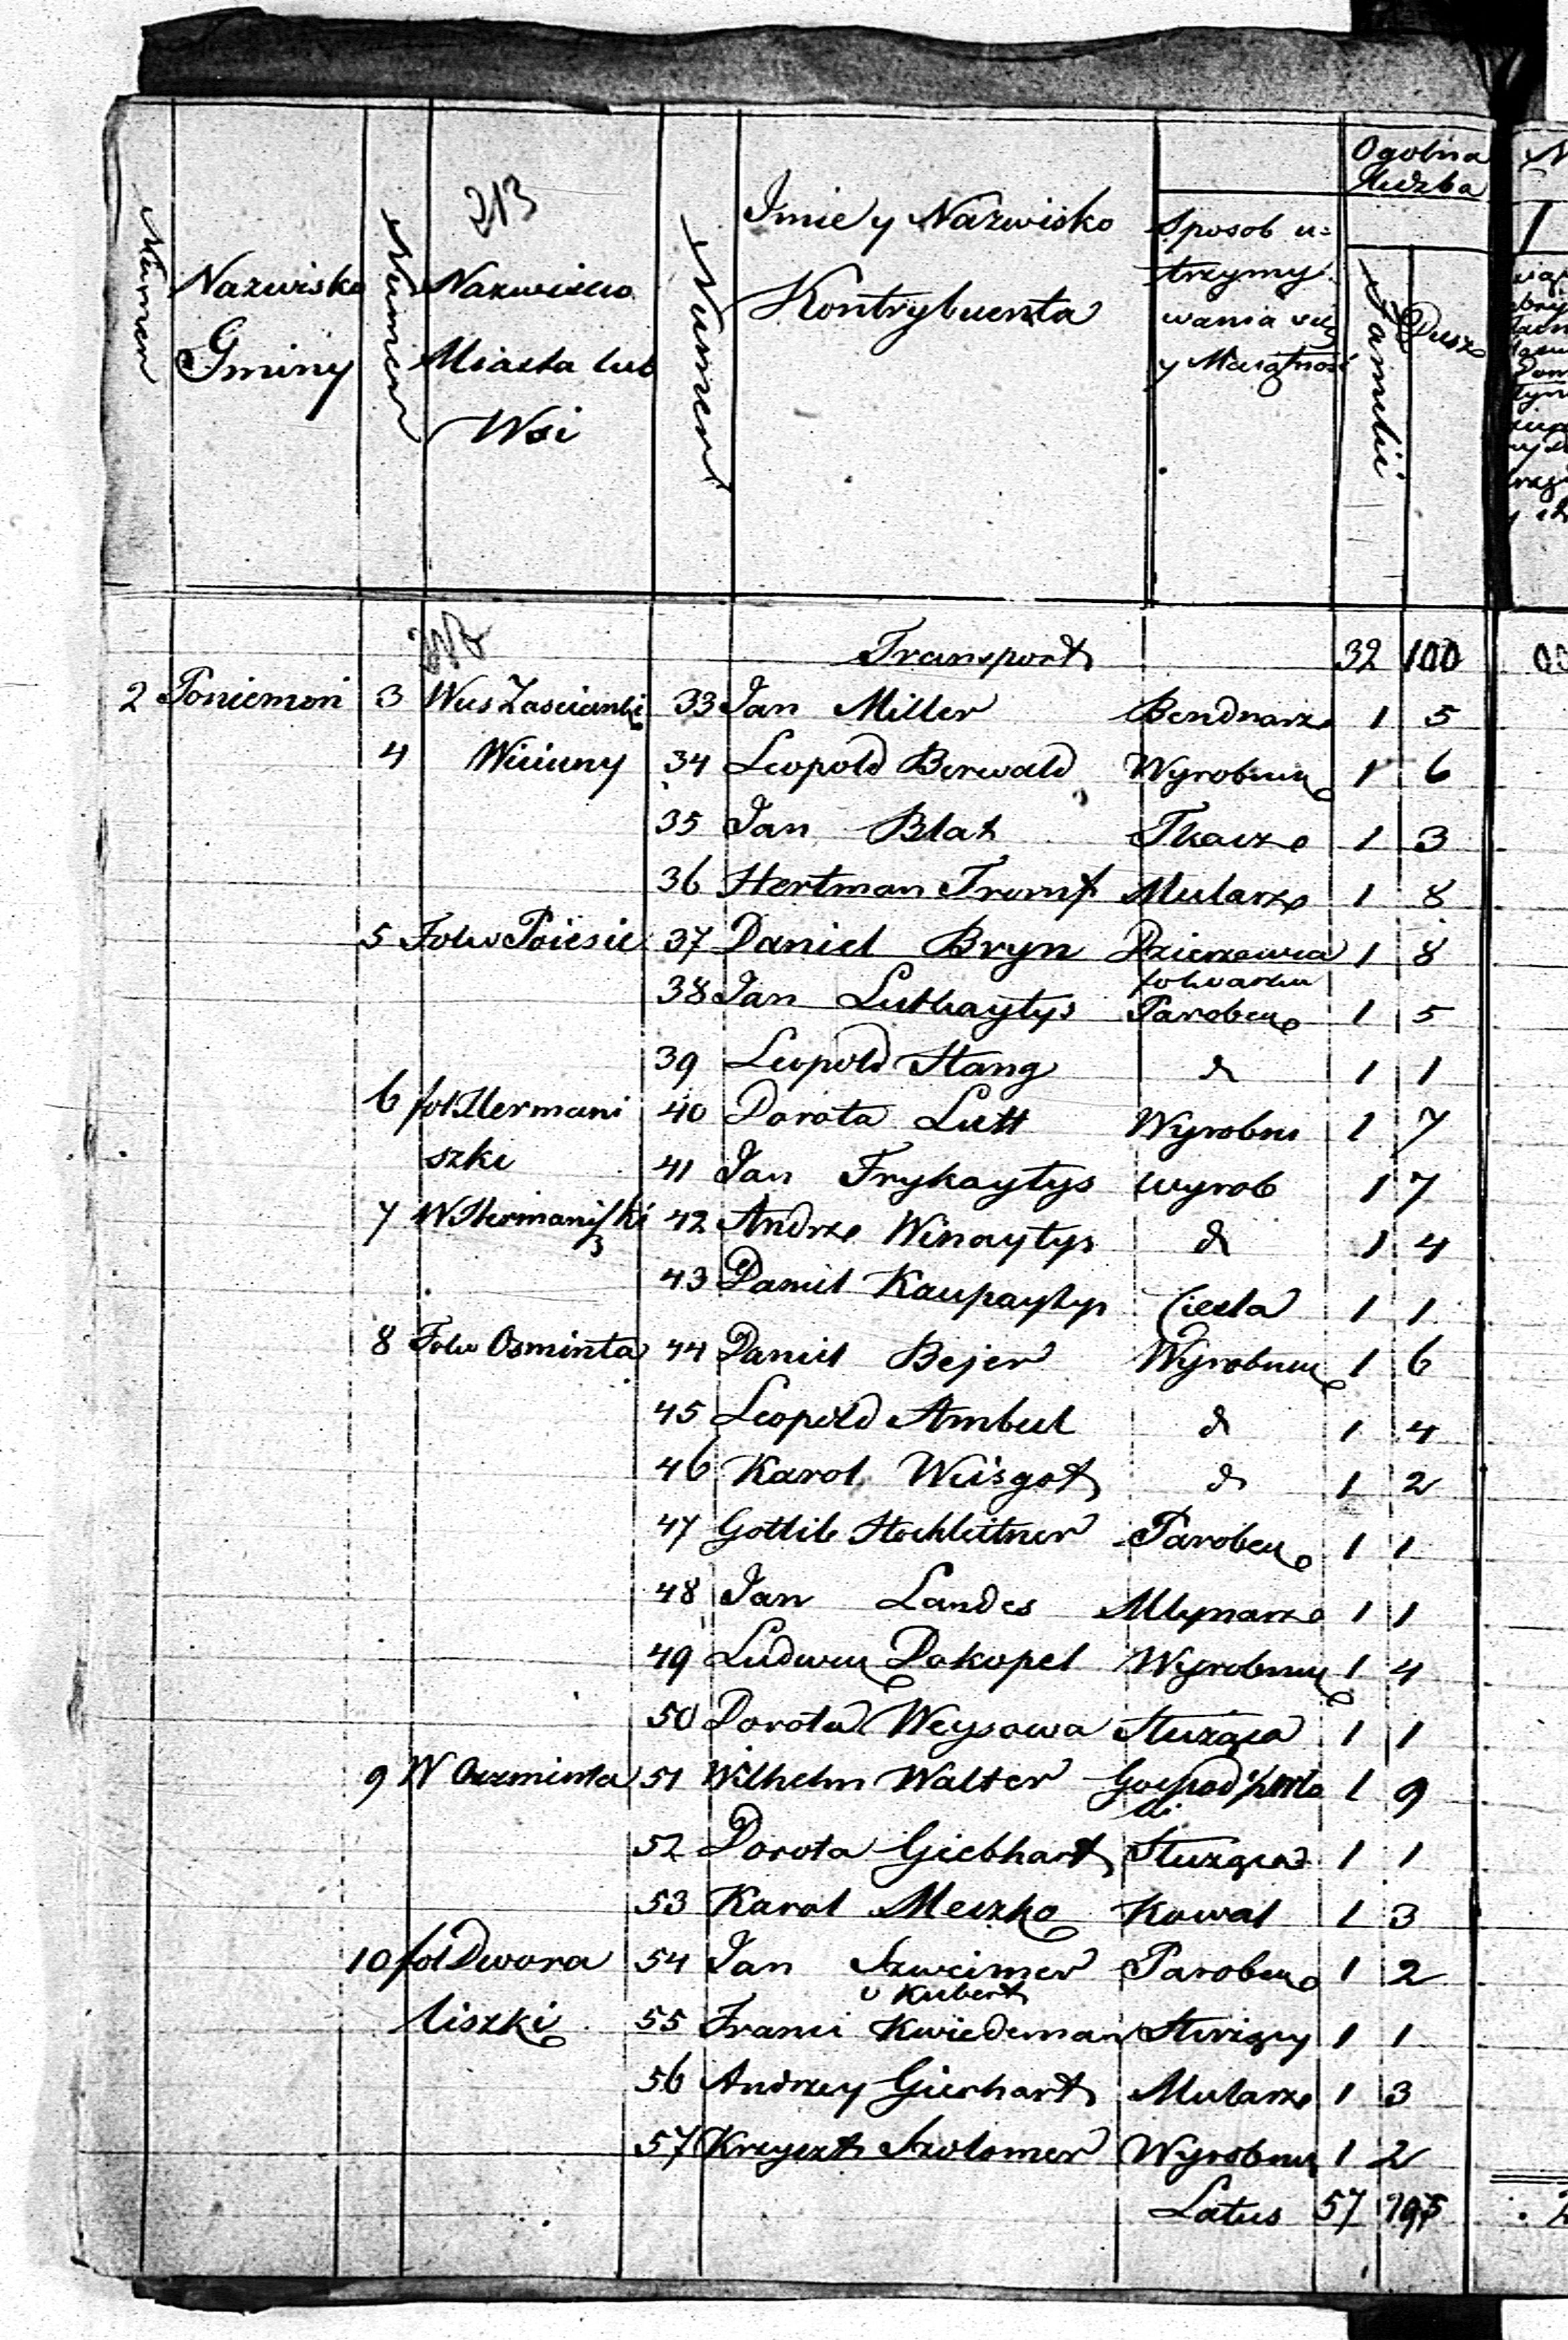 213
Ogolna
liczba
Numer
Nazwisko
Gminy
Numer
Nazwisko
Miasta lub
Wsi
Numer
Imie y Nazwisko
Kontrybuenta
Sposob u=
trzymy
wania się
y Maiątność
Familii
Dusz
Transport 32 100
2 Poniemoń 3 Wies Zascianki 33 Jan Miller Bendnarz 1 5
4 Wiciuny 34 Leopold Berwald Wyrobnik 1 6
35 Jan Blat Tkacz 1 3
36 Hertman Trumf Mularz 1 8
5 Folw Poiesie 37 Daniel Bryn Dzierzawca 1 8
folwarku
38 Jan Lutkaytys Parobek 1 5
39 Leopold Stang d 1 1
6 fol Hermani 40 Dorota Lutt Wyrobni 1 7
szki 41 Jan Frykaytys wyrob 1 7
7 W Hermaniszki 42 Andrze Winaytys d 1 4
43 Daniel Kaupaytys Ciesla 1 1
8 Folw Osminta 44 Daniel Bejer Wyrobnik 1 6
45 Leopold Ambul d 1 4
46 Karol Weisgot d 1 2
47 Gottlib Stochleitner Parobek 1 1
48 Jan Landes Mlynarz 1 1
49 Ludwik Dakopel Wyrobnik 1 4
50 Dorota Weysowa Służąca 1 1
9 W Oszminta 51 Wilhelm Walter Gospod 1 9
52 Dorota Giebhart Służąca 1 1
53 Karol Meszko Kowal 1 3
10 fol Dwora 54 Jan Szweimer Parobek 1 2
Kubert
liszki 55 Franci Kwiedeman Służący 1 1
56 Andrzey Gierhart Mularz 1 3
57 Krzyszt Szolomer Wyrobnik 1 2
Latus 57 195